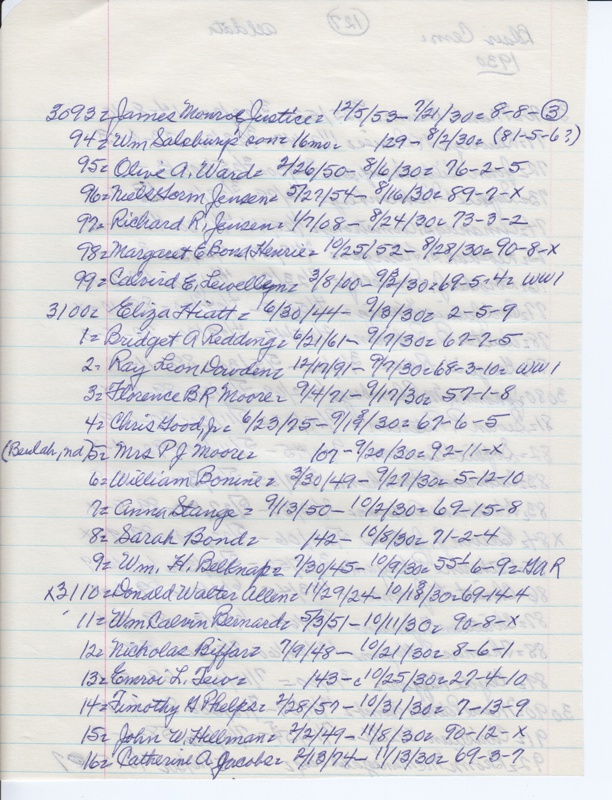 127
1930
3093= James Monroe Justice= 12/5/53- 7/21/30= 8-8-3
94= Wm Salsburg's son= 16mo= 1/29- 8/2/30= (81-5-6?)
95= Olive A. Ward= 2/26/50- 8/6/30= 76-2-5
96= Niels Horm Jensen= 5/27/54- 8/16/30= 89-7-X
97= Richard R. Jensen= 1/7/08- 8/24/30= 73-3-2
98= Margaret E Bond Henrie= 10/25/52- 8/28/30= 90-8-X
99= Calvird E, Lewellyn= 3/8/00- 9/2/30= 69-5-4= WW1
3100= Eliza Hiatt= 6/30/44- 9/3/30= 2-5-9
1= Bridget A Redding= 6/21/61- 9/7/30= 67-7-5
2= Ray Leon Dowden= 12/17/91- 9/7/30= 68-3-10= WW1
3= Florence B R Moore= 9/4/71- 9/17/30= 57-1-8
4= Chris Hood, Jr= 6/23/75- 9/19/30= 67-6-5
(Beulah, nd) 5= Mrs P J Moore= /07- 9/20/30= 92-11-X
6= William Bonine= 3/30/49- 9/27/30= 5-12-10
7= Anna Stange= 9/13/50- 10/2/30= 69-15-8
8= Sarah Bond= /42- 10/8/30= 71-2-4
9= Wm. H. Belknap= 7/30/45- 10/9/30= 55½-6-9= GAR
X3110= Donald Walter Allen= 11/29/24- 10/18/30= 69-14-4
11= Wm Calvin Bernard= 5/3/51- 10/11/30= 90-8-X
12= Nicholas Biffar= 7/9/48- 10/21/30= 8-6-1
13= L. = /43- 10/25/30= 27-4-10
14= Timothy G Phelps= 2/28/57- 10/31/30= 7-13-9
15= John W. Hillman= 2/2/49- 11/8/30= 90-12-X
16= Catherine A. Jacobs= 2/13/74- 11/13/30= 69-3-7